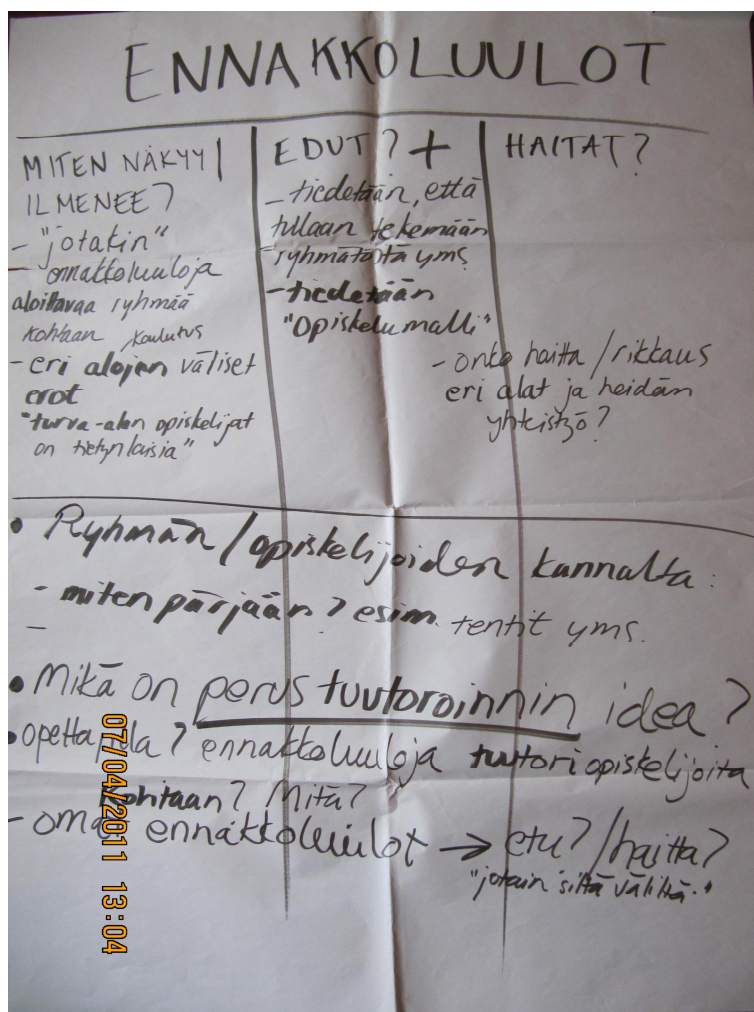 ENNAKKOLUULOT
MITEN NÄKYY /
ILMENEE?
- "jotakin"
- ennakkoluuloja
aloittavaa ryhmää
kohtaan /koulutus
- eri alojen väliset
erot
"turva-alan opiskelijat
on tietynlaisia"
EDUT? +
- tiedetään, että
tullaan tekemään
ryhmätöitä yms.
- tiedetään
"Opiskelumalli"
HAITAT?
- onko haitta / rikkaus
eri alat ja heidän
yhteistyö?
• Ryhmän / opiskelijoiden kannalta:
- miten pärjään? esim. tentit yms.
-
• Mikä on perus tuutoroinnin idea?
• opettajilla? ennakkoluuloja tuutoriopiskelijoita
kohtaan? Mitä?
- omat ennakkoluulot → etu? / haitta?
"jotain siltä väliltä."
07/04/2011 13:04